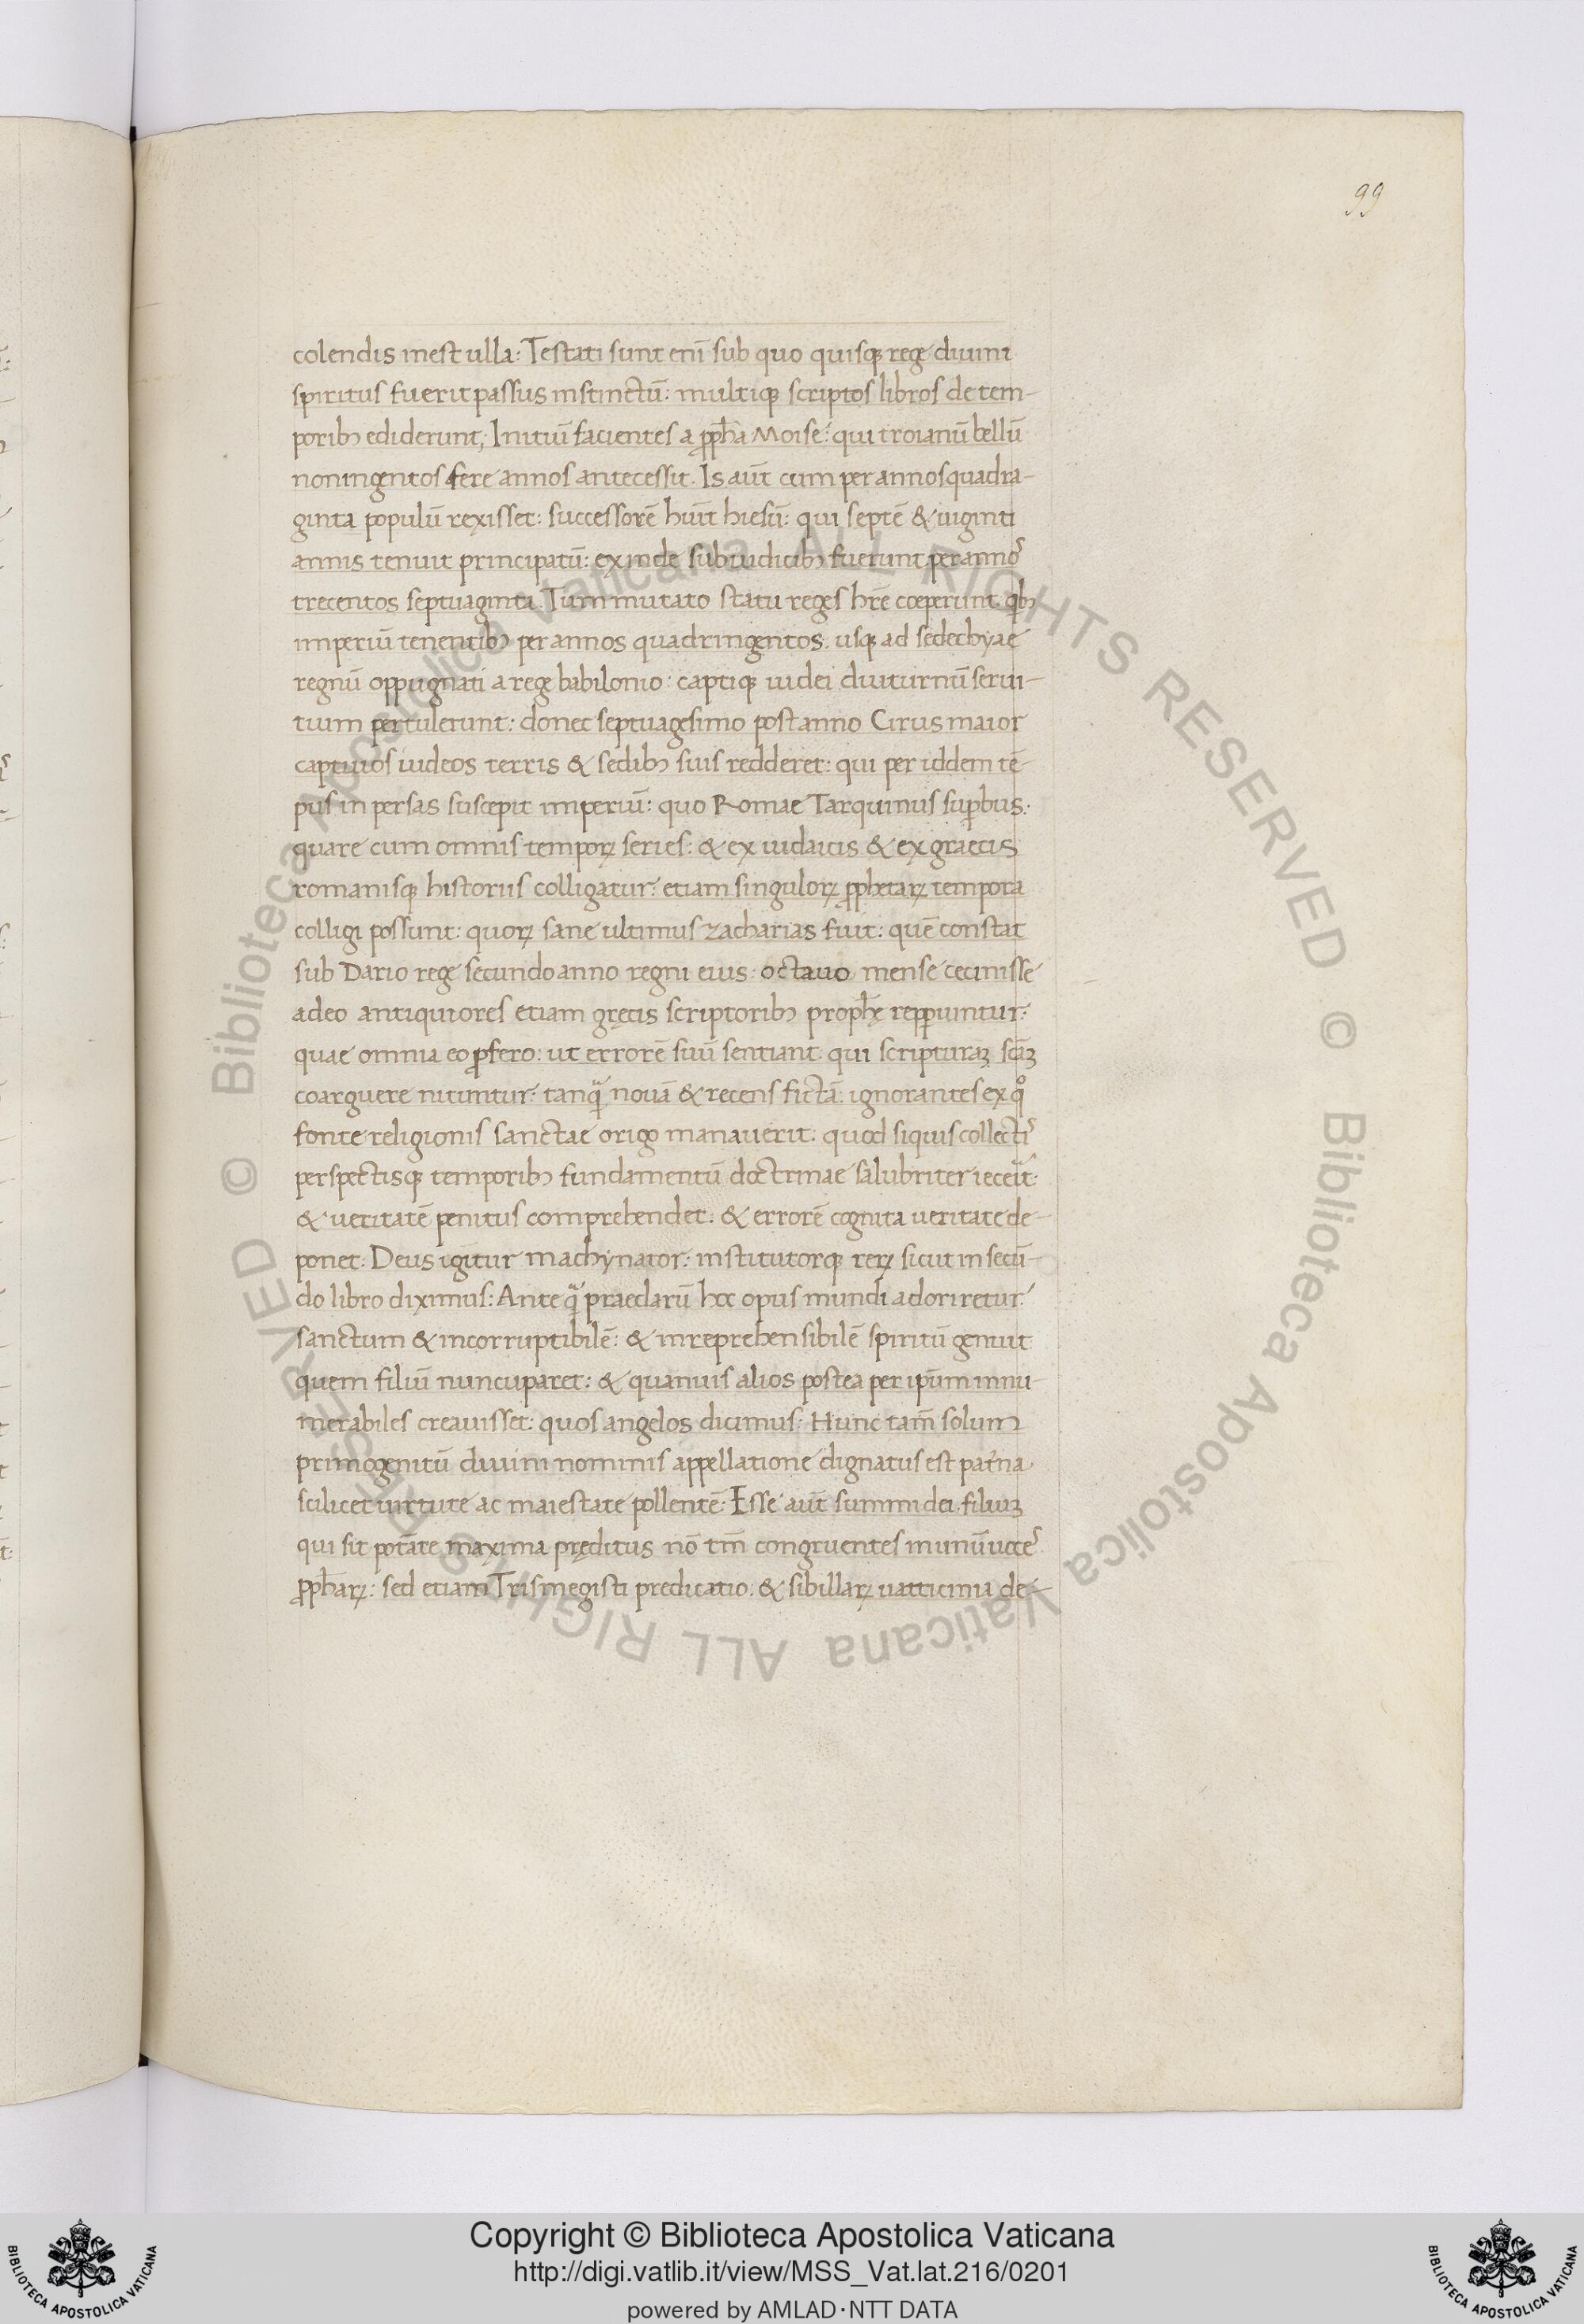 99
colendis inest ulla: Testati sunt enī sub quo quisqꝫ rege diuini
spiritus fuerit passus instinctū: multiqꝫ scriptos libros de tem-
poribꝫ ediderunt; Initiū facientes a ꝓph̄a Moise: qui troianū bellū
noningentos fere annos antecessit. Is aūt cum per annos quadra-
ginta populū rexisset: successorē huīt hiesū: qui septē & uiginti
annis tenuit principatū: exinde sub iudicibꝫ fuerunt per annoˢ
trecentos septuaginta. Tum mutato statu reges hr̄e cœperunt. qͥbꝫ
imperiū tenentibꝫ per annos quadringentos. usqꝫ ad sedechyae
regnū oppugnati a rege babilonio: captiqꝫ iudei diuturnū serui-
tium pertulerunt: donec septuagesimo post anno Cirus maior
captiuos iudeos terris & sedibꝫ suis redderet: qui per iddem tē-
pus in persas suscepit imperiū: quo Romae Tarquinus suꝑbus.
quare cum omnis temporꝝ series: & ex iudaicis & ex graecis
romanisqꝫ historiis colligatur: etiam singulorꝝ ꝓphetarꝝ tempora
colligi possunt: quorꝝ sane ultimus zacharias fuit: quē constat
sub Dario rege secundo anno regni eius octauo mense cecinisse
adeo antiquiores etiam gręcis scriptoribꝫ proph̄ę repperiuntur:
quae omnia eo ꝓfero: ut errorē suū sentiant. qui scripturaꝫ scāꝫ
coarguere nituntur: tanqᷓ nouā & recens fictā: ignorantes ex qͦ
fonte religionis sanctae origo manauerit: quod siquis collectiˢ
perspectisqꝫ temporibꝫ fundamentū doctrinae salubriter iecerit:
& ueritatē penitus comprehendet: & errorē cognita ueritate de-
ponet: Deus igitur machynator: institutorqꝫ rerꝝ sicut in secū-
do libro diximus: Ante qᷓ praeclarū hoc opus mundi adoriretur:
sanctum & incorruptibilē: & inreprehensibilē spiritū genuit
quem filiū nuncuparet: & quamuis alios postea per ip̄um innu-
merabiles creauisset: quos angelos dicimus: Hunc tam̄ solum
primogenitū diuini nominis appellatione dignatus est pat̄na
scilicet uirtute ac maiestate pollentē: Esse aūt summi dei filiuꝫ
qui sit potāte maxima pręditus nō tm̄ congruentes in unū uoceˢ
ꝓph̄arꝝ: sed etiam Trismegisti predicatio: & sibillarꝝ uatticinia de-
© Biblioteca Apostolica Vaticana ALL RIGHTS RESERVED © Biblioteca Apostolica Vaticana ALL RIGHTS RESERVED
BIBLIOTECA APOSTOLICA VATICANA
Copyright © Biblioteca Apostolica Vaticana
http://digi.vatlib.it/view/MSS_Vat.lat.216/0201
powered by AMLAD·NTT DATA
BIBLIOTECA APOSTOLICA VATICANA